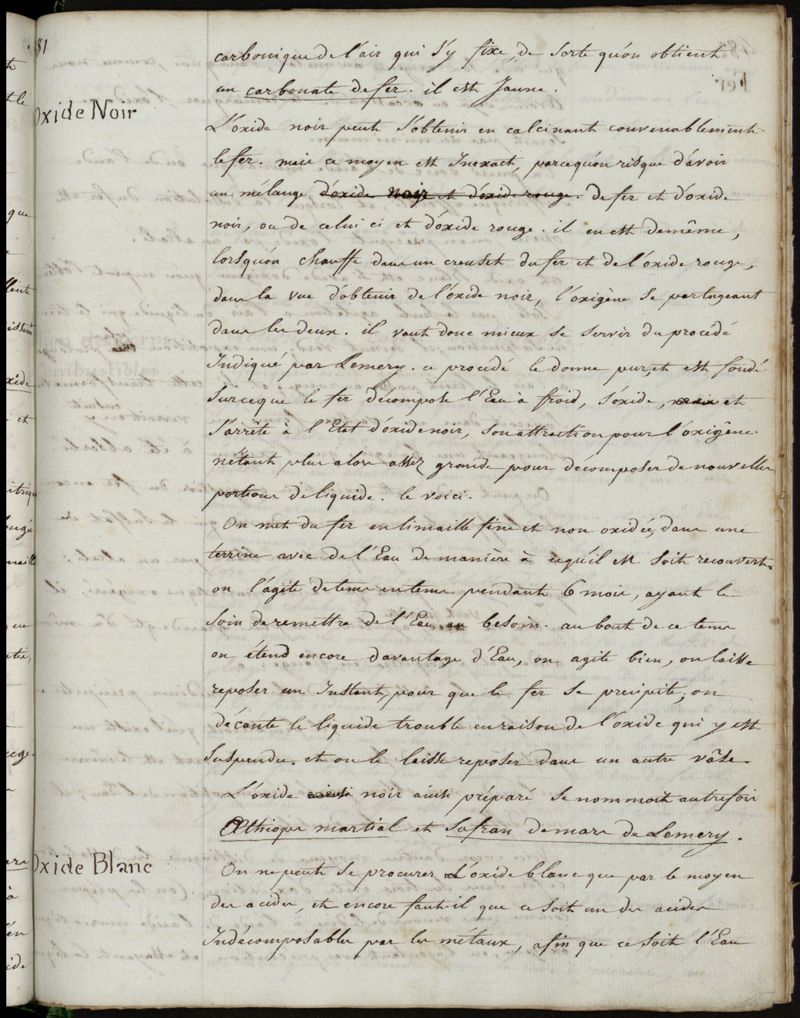 81
carbonique de l'air qui s'y fixe, de sorte qu'on obtient
un carbonate de fer. il est Jaune.
Oxide Noir
L'oxide noir peut s'obtenir en calcinant convenablement
le fer. mais ce moyen est Inexact, parcequ'on risque d'avoir
un mélange d'oxide noir et d'oxide rouge. de fer et d'oxide
noir, ou de celui ci et d'oxide rouge. il en est de même,
lorsqu'on chauffe dans un creuset du fer et de l'oxide rouge,
dans la vue d'obtenir de l'oxide noir, l'oxigène se partageant
dans les deux. il vaut donc mieux se servir du procédé
Indiqué par Lemery. ce procédé le donne pur, et est fondé
sur ce que le fer décompose l'Eau à froid, s'oxide, et
s'arrête à l'Etat d'oxide noir, son attraction pour l'oxigène
n'étant plus alors assez grande pour décomposer de nouvelles
portions de liquide. le voici.
On met du fer en limaille fine et non oxidée, dans une
terrine avec de l'Eau de manière à ce qu'il en soit recouvert.
on l'agite de tems en tems pendant 6 mois, ayant le
soin de remettre de l'Eau au besoin. au bout de ce tems
on étend encore davantage d'Eau, on agite bien, on laisse
reposer un Instant, pour que le fer se precipite; on
décante le liquide trouble en raison de l'oxide qui y est
suspendu, et on le laisse reposer dans un autre vâse.
L'oxide ainsi noir ainsi préparé se nommoit autrefois
Œthiops martial et Safran de mars de Lemery.
Oxide Blanc
On ne peut se procurer L'oxide blanc que par le moyen
des acides, et encore faut-il que ce soit un des acides
Indécomposables par les métaux, afin que ce soit l'Eau